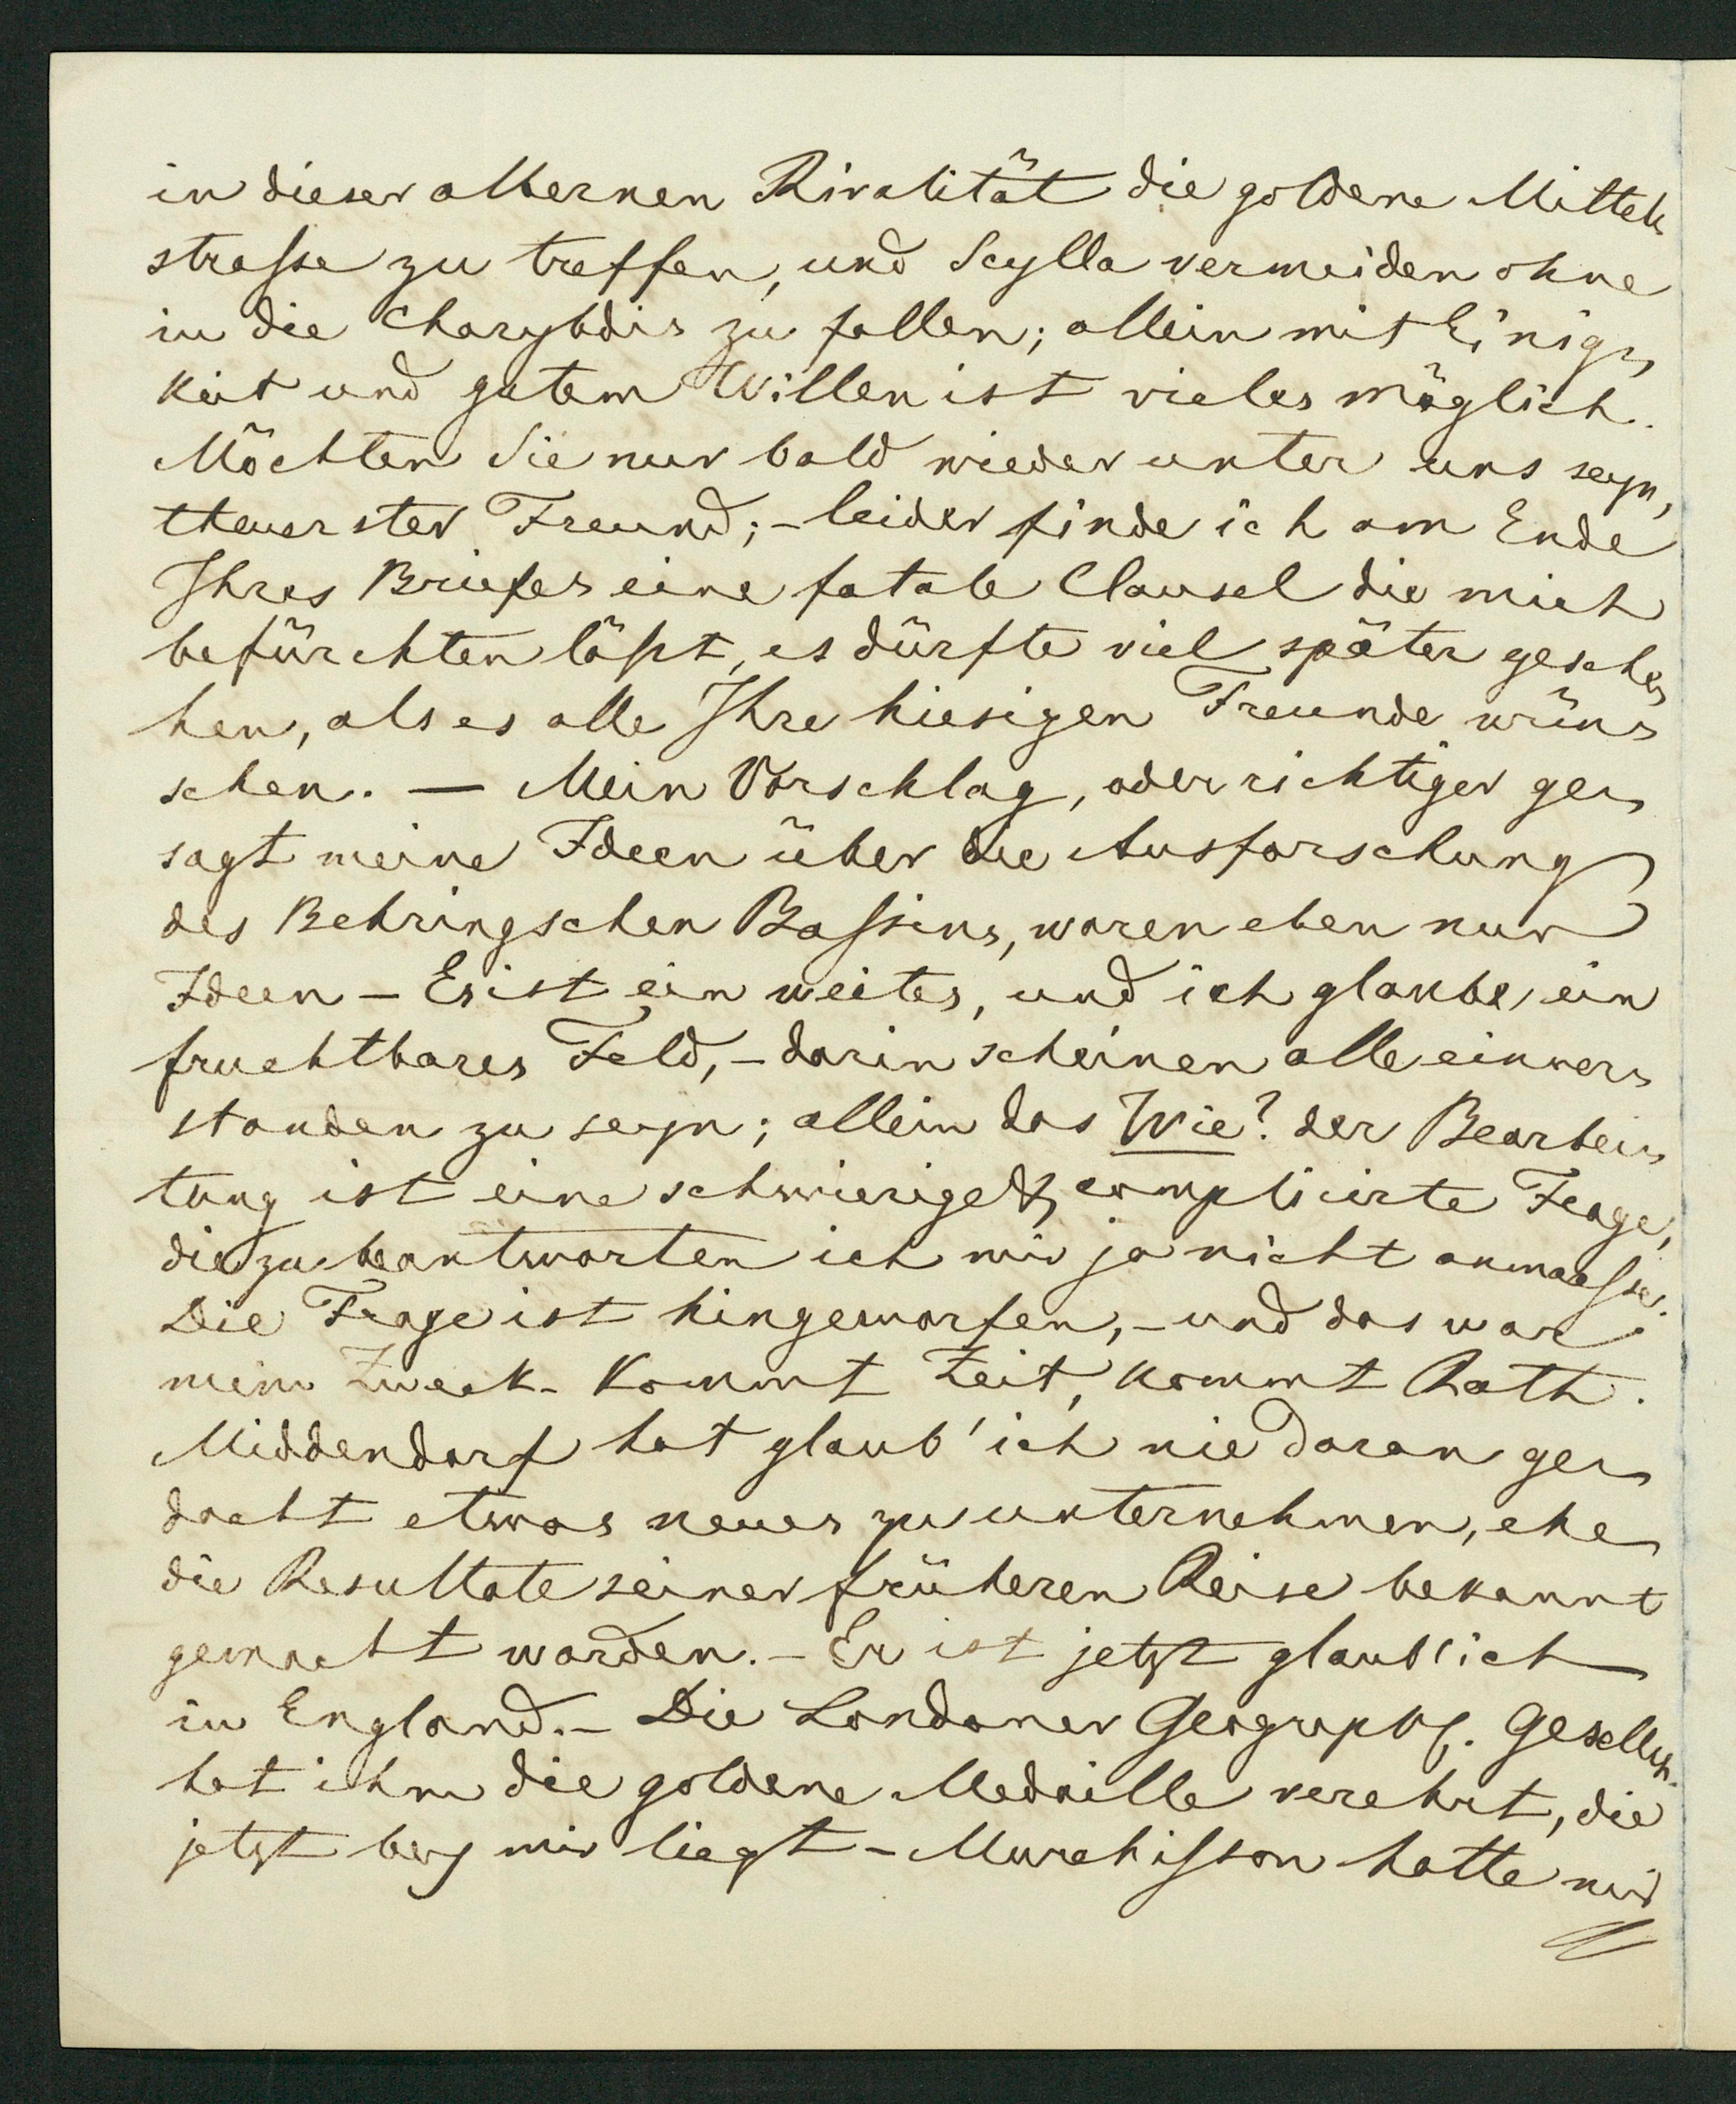 in dieser albernen Rivalität die goldene Mittel-
straſse zu treffen, und Scylla vermeiden ohne
in die Charybdis zu fallen; allein mit Einig-
keit und gutem Willen ist vieles möglich.
Möchten Sie nur bald wieder unter uns seyn,
theuerster Freund; - leider finde ich am Ende
Ihres Briefes eine fatale Clausel die mich
befürchten läſst, es dürfte viel später gesche-
hen, als es alle Ihre hiesigen Freunde wün-
schen. — Mein Vorschlag, oder richtiger ge-
sagt meine Ideen über die Ausforschung
des Behringschen Baſsins, waren eben nur
Ideen - Es ist ein weites, und ich glaube, ein
fruchtbares Feld, - darin scheinen alle einver-
standen zu seyn; allein das Wie? der Bearbei-
tung ist eine schwierige & complicirte Frage,
die zu beantworten ich mir ja nicht anmaaſse.
Die Frage ist hingeworfen, - und das war
mein Zweck - Kommt Zeit, kommt Rath.
Middendorf hat glaub' ich nie daran ge-
dacht etwas neues zu unternehmen, ehe
die Resultate seiner früheren Reise bekannt
gemacht worden. - Er ist jetzt glaub' ich
in England. - Die Londoner Geograph. Gesellsch.
hat ihm die goldene Medaille verehrt, die
jetzt bey mir liegt - Murchiſson hatte mir